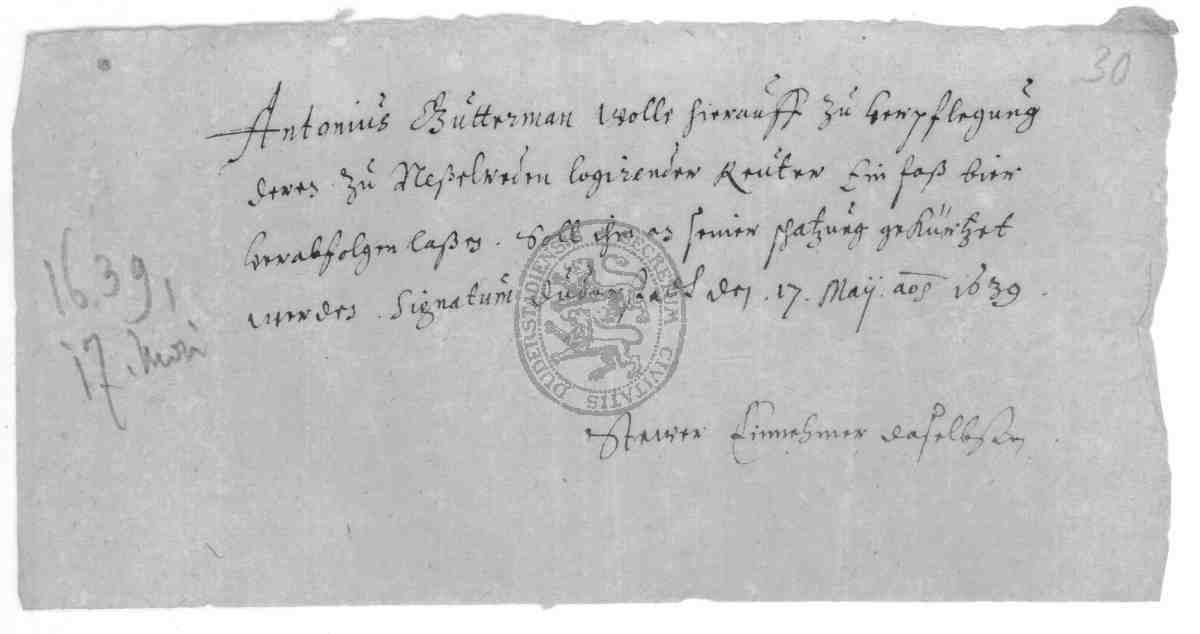 30
Antonius Gutterman wolle hierauff zu verpflegung
deren zu Neßelreden logirender Reuter Ein faß bier
verabfolgen laßen. Soll ihm an seiner schatzung gekürtzet
werden. Signatum Duderstadt den .17. Maij. ao 1639.
1639,
17. Maii
Stewer Einnehmer daselbsten
SECRETUM CIVITATIS DUDERSTADIENSIS